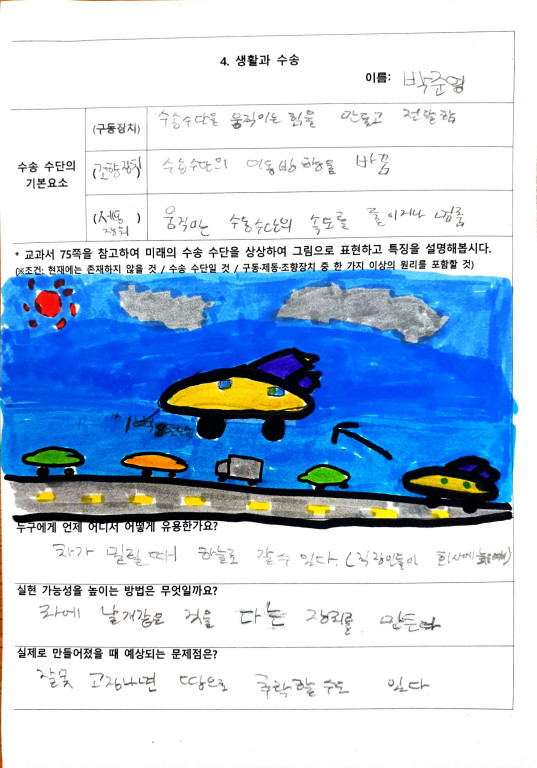 4. 생활과 수송
이름: 박준영
수송 수단의 기본요소
(구동장치) 수송수단을 움직이는 힘을 만들고 전달함
(조향장치) 수송수단의 이동방향을 바꿈
(제동장치) 움직이는 수송수단의 속도를 줄이거나 멈춤
* 교과서 75쪽을 참고하여 미래의 수송 수단을 상상하여 그림으로 표현하고 특징을 설명해봅시다.
(※조건: 현재에는 존재하지 않을 것 / 수송 수단일 것 / 구동·제동·조향장치 중 한 가지 이상의 원리를 포함할 것)
누구에게 언제 어디서 어떻게 유용한가요?
차가 밀릴 때 하늘로 갈 수 있다. (직장인들이 회사에
실현 가능성을 높이는 방법은 무엇일까요?
차에 날개같은 것을 다는 장치를 만든다
실제로 만들어졌을 때 예상되는 문제점은?
잘못 고장나면 땅으로 추락할 수도 있다